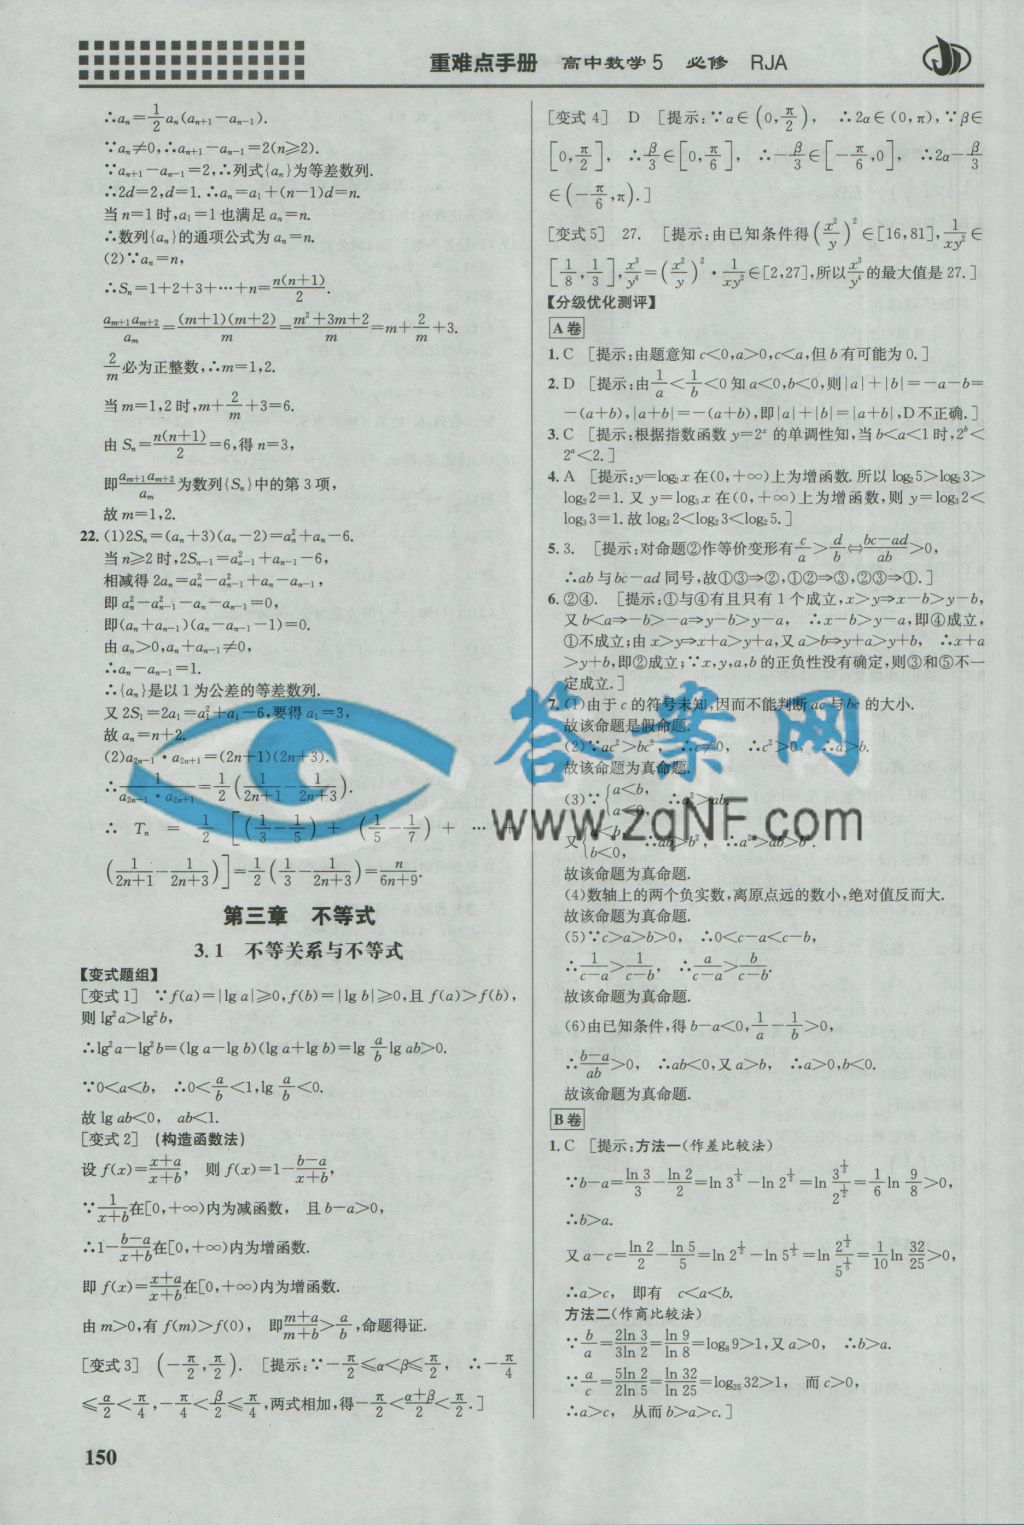 重难点手册 高中数学5 必修 RJA
∴aₙ=1/2aₙ(aₙ₊₁-aₙ₋₁).
∵aₙ≠0,∴aₙ₊₁-aₙ₋₁=2(n≥2).
∵aₙ₊₁-aₙ₋₁=2,∴列式{aₙ}为等差数列.
∴2d=2,d=1.∴aₙ=a₁+(n-1)d=n.
当n=1时,a₁=1也满足aₙ=n.
∴数列{aₙ}的通项公式为aₙ=n.
(2)∵aₙ=n,
∴Sₙ=1+2+3+…+n=n(n+1)/2.
aₘ₊₁aₘ₊₂/aₘ=(m+1)(m+2)/m=(m²+3m+2)/m=m+2/m+3.
2/m必为正整数,∴m=1,2.
当m=1,2时,m+2/m+3=6.
由Sₙ=n(n+1)/2=6,得n=3,
即aₘ₊₁aₘ₊₂/aₘ为数列{Sₙ}中的第3项,
故m=1,2.
22.(1)2Sₙ=(aₙ+3)(aₙ-2)=aₙ²+aₙ-6.
当n≥2时,2Sₙ₋₁=aₙ₋₁²+aₙ₋₁-6,
相减得2aₙ=aₙ²-aₙ₋₁²+aₙ-aₙ₋₁,
即aₙ²-aₙ₋₁²-aₙ-aₙ₋₁=0,
即(aₙ+aₙ₋₁)(aₙ-aₙ₋₁-1)=0.
由aₙ>0,aₙ+aₙ₋₁≠0,
∴aₙ-aₙ₋₁=1.
∴{aₙ}是以1为公差的等差数列.
又2S₁=2a₁=a₁²+a₁-6,要得a₁=3,
故aₙ=n+2.
(2)a₂ₙ₋₁·a₂ₙ₊₁=(2n+1)(2n+3).
∴1/(a₂ₙ₋₁·a₂ₙ₊₁)=1/2(1/(2n+1)-1/(2n+3)).
∴ Tₙ = 1/2 [(1/3-1/5) + (1/5-1/7) + … +
(1/(2n+1)-1/(2n+3))]=1/2(1/3-1/(2n+3))=n/(6n+9).
第三章 不等式
3.1 不等关系与不等式
【变式题组】
[变式1] ∵f(a)=|lg a|≥0,f(b)=|lg b|≥0,且f(a)>f(b),
则lg²a>lg²b,
∴lg²a-lg²b=(lg a-lg b)(lg a+lg b)=lg a/b lg ab>0.
∵0<a<b, ∴0<a/b<1,lg a/b<0.
故lg ab<0, ab<1.
[变式2] (构造函数法)
设f(x)=(x+a)/(x+b), 则f(x)=1-(b-a)/(x+b),
∵1/(x+b)在[0,+∞)内为减函数, 且b-a>0,
∴1-(b-a)/(x+b)在[0,+∞)内为增函数.
即f(x)=(x+a)/(x+b)在[0,+∞)内为增函数.
由m>0,有f(m)>f(0), 即(m+a)/(m+b)>a/b,命题得证.
[变式3] (-π/2,π/2). [提示:∵-π/2≤α<β≤π/2, ∴-π/4
≤α/2<π/4,-π/4<β/2≤π/4,两式相加,得-π/2<(α+β)/2<π/2.]
150
[变式4] D [提示:∵α∈(0,π/2), ∴2α∈(0,π),∵β∈
[0,π/2], ∴β/3∈[0,π/6], ∴-β/3∈[-π/6,0], ∴2α-β/3
∈(-π/6,π).]
[变式5] 27. [提示:由已知条件得(x²/y)²∈[16,81],1/xy²∈
[1/8,1/3],x³/y⁴=(x²/y)²·1/xy²∈[2,27],所以x³/y⁴的最大值是27.]
【分级优化测评】
A卷
1.C [提示:由题意知c<0,a>0,c<a,但b有可能为0.]
2.D [提示:由1/a<1/b<0知a<0,b<0,则|a|+|b|=-a-b=
-(a+b),|a+b|=-(a+b),即|a|+|b|=|a+b|,D不正确.]
3.C [提示:根据指数函数y=2ˣ的单调性知,当b<a<1时,2ᵇ<
2ᵃ<2.]
4.A [提示:y=log₂x在(0,+∞)上为增函数.所以log₂5>log₂3>
log₂2=1.又y=log₃x在(0,+∞)上为增函数,则y=log₃2<
log₃3=1.故log₃2<log₂3<log₂5.]
5.3. [提示:对命题②作等价变形有c/a>d/b⇔(bc-ad)/ab>0,
∴ab与bc-ad同号,故①③⇒②,①②⇒③,②③⇒①.]
6.②④. [提示:①与④有且只有1个成立,x>y⇒x-b>y-b,
又b<a⇒-b>-a⇒y-b>y-a, ∴x-b>y-a,即④成立,
①不成立;由x>y⇒x+a>y+a,又a>b⇒y+a>y+b, ∴x+a
>y+b,即②成立;∵x,y,a,b的正负性没有确定,则③和⑤不一
定成立.]
7.(1)由于c的符号未知,因而不能判断ac与bc的大小.
故该命题是假命题.
(2)∵ac²>bc², ∴c≠0, ∴c²>0, ∴a>b.
故该命题为真命题.
(3)∵{a<b, a<0, ∴a²>ab.
又{a<b, b<0, ∴ab>b², ∴a²>ab>b².
故该命题为真命题.
(4)数轴上的两个负实数,离原点远的数小,绝对值反而大.
故该命题为真命题.
(5)∵c>a>b>0, ∴0<c-a<c-b,
∴1/(c-a)>1/(c-b), ∴a/(c-a)>b/(c-b).
故该命题为真命题.
(6)由已知条件,得b-a<0,1/a-1/b>0,
∴(b-a)/ab>0, ∴ab<0,又a>b, ∴a>0,b<0.
故该命题为真命题.
B卷
1.C [提示:方法一(作差比较法)
∵b-a=ln 3/3-ln 2/2=ln 3^(1/3)-ln 2^(1/2)=ln 3^(1/3)/2^(1/2)=1/6 ln 9/8>0,
∴b>a.
又a-c=ln 2/2-ln 5/5=ln 2^(1/2)-ln 5^(1/5)=ln 2^(1/2)/5^(1/5)=1/10 ln 32/25>0,
∴a>c, 即有 c<a<b.
方法二(作商比较法)
∵b/a=2ln 3/3ln 2=ln 9/ln 8=log₈9>1,又a>0, ∴b>a.
∵a/c=5ln 2/2ln 5=ln 32/ln 25=log₂₅32>1, 而c>0,
∴a>c, 从而b>a>c.]
答案网
www.zqNF.com